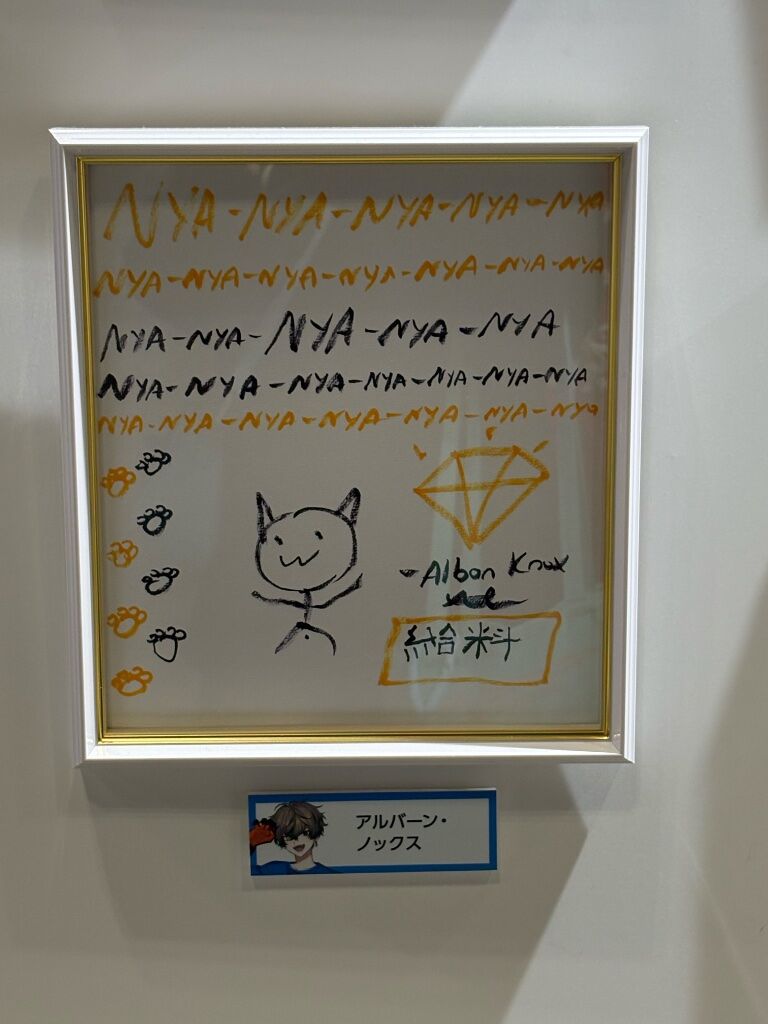 NYA-NYA-NYA-NYA-NYA
NYA-NYA-NYA-NYA-NYA-NYA-NYA
NYA-NYA-NYA-NYA-NYA
NYA-NYA-NYA-NYA-NYA-NYA-NYA
NYA-NYA-NYA-NYA-NYA-NYA-NYA
-Alban Knox
給料
アルバーン・
ノックス